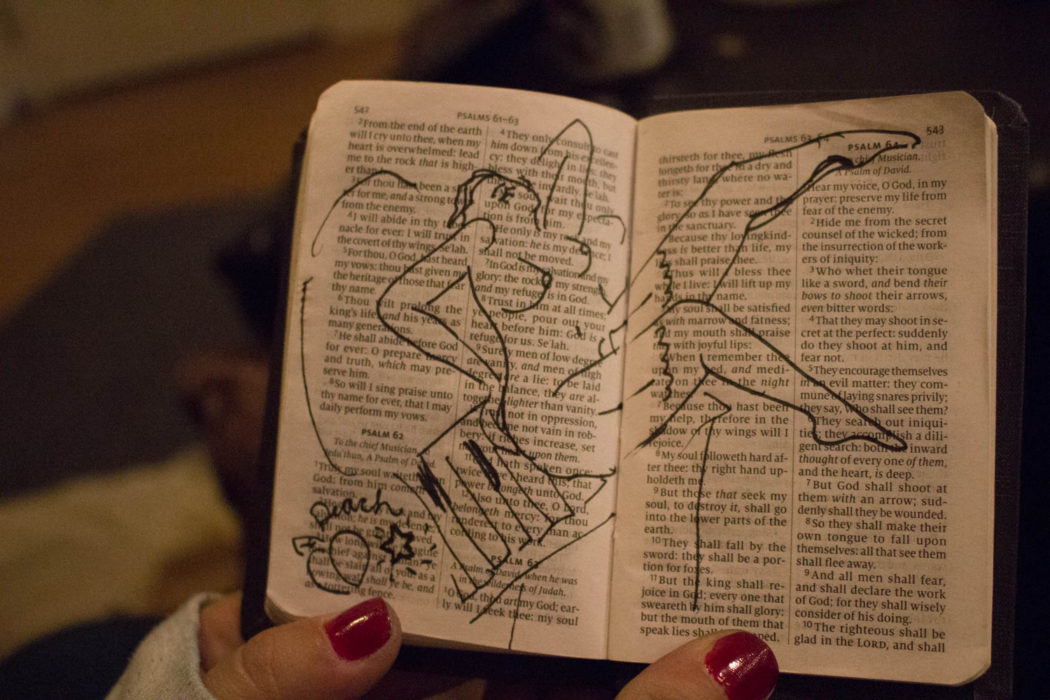 542
PSALMS 61–63
²From the end of the earth
will I cry unto thee, when my
heart is overwhelmed: lead
me to the rock that is high-
er than
³For thou hast been a
for me, and a strong
from the enemy.
⁴I will abide in thy
nacle for ever: I will trust in
the covert of thy wings. Selah.
⁵For thou, O God, hast heard
my vows: thou hast given me
the heritage of those that fear
thy name.
⁶Thou wilt prolong the
king's life: and his years as
many generations.
⁷He shall abide before God
for ever: O prepare mercy
and truth, which may pre-
serve him.
⁸So will I sing praise unto
thy name for ever, that I may
daily perform my vows.
PSALM 62
To the chief Musician,
A Psalm of
Truly my soul
God: from him cometh
salvation.
peach
⁴They only consult to cast
him down from his excellen-
cy: they delight in lies: they
bless with their mouth, but
inwardly. Selah.
soul, wait thou only
upon God; for my expecta-
tion is from him.
He only is my rock and my
salvation: he is my defence; I
shall not be moved.
⁷In God is my salvation and my
glory: the rock of my strength,
and my refuge, is in God.
⁸Trust in him at all times;
ye people, pour out your
heart before him: God is a
refuge for us. Selah.
⁹Surely men of low degree
are vanity, and men of high
degree are a lie: to be laid
in the balance, they are al-
together lighter than vanity.
not in oppression,
and become not vain in rob-
bery: if riches increase, set
upon them.
hath spoken once;
twice have I heard this; that
power belongeth unto God.
Also unto thee, O Lord,
belongeth mercy: for thou
renderest to every man ac-
cording to his work.
PSALM 63
A Psalm of David, when he was
in the wilderness of Judah.
God, thou art my God; ear-
ly will I seek thee: my soul
PSALMS 63,
543
thirsteth for thee, my flesh
longeth for thee in a dry and
thirsty land, where no wa-
ter is;
²To see thy power and thy
glory, so as I have seen thee
in the sanctuary.
Because thy lovingkind-
ness is better than life, my
lips shall praise thee.
Thus will I bless thee
while I live: I will lift up my
hands in thy name.
My soul shall be satisfied
as with marrow and fatness;
and my mouth shall praise
thee with joyful lips:
When I remember thee
upon my bed, and medi-
tate on thee in the night
watches.
⁷Because thou hast been
my help, therefore in the
shadow of thy wings will I
rejoice.
⁸My soul followeth hard af-
ter thee: thy right hand up-
holdeth me.
⁹But those that seek my
soul, to destroy it, shall go
into the lower parts of the
earth.
¹⁰They shall fall by the
sword: they shall be a por-
tion for foxes.
¹¹But the king shall re-
joice in God; every one that
sweareth by him shall glory:
but the mouth of them that
speak lies shall be stopped.
PSALM 64
chief Musician,
A Psalm of David.
Hear my voice, O God, in my
prayer: preserve my life from
fear of the enemy.
²Hide me from the secret
counsel of the wicked; from
the insurrection of the work-
ers of iniquity:
³Who whet their tongue
like a sword, and bend their
bows to shoot their arrows,
even bitter words:
⁴That they may shoot in se-
cret at the perfect: suddenly
do they shoot at him, and
fear not.
⁵They encourage themselves
in an evil matter: they com-
mune of laying snares privily;
they say, Who shall see them?
⁶They search out iniqui-
ties; they accomplish a dili-
gent search: both the inward
thought of every one of them,
and the heart, is deep.
⁷But God shall shoot at
them with an arrow; sud-
denly shall they be wounded.
⁸So they shall make their
own tongue to fall upon
themselves: all that see them
shall flee away.
⁹And all men shall fear,
and shall declare the work
of God; for they shall wisely
consider of his doing.
¹⁰The righteous shall be
glad in the LORD, and shall